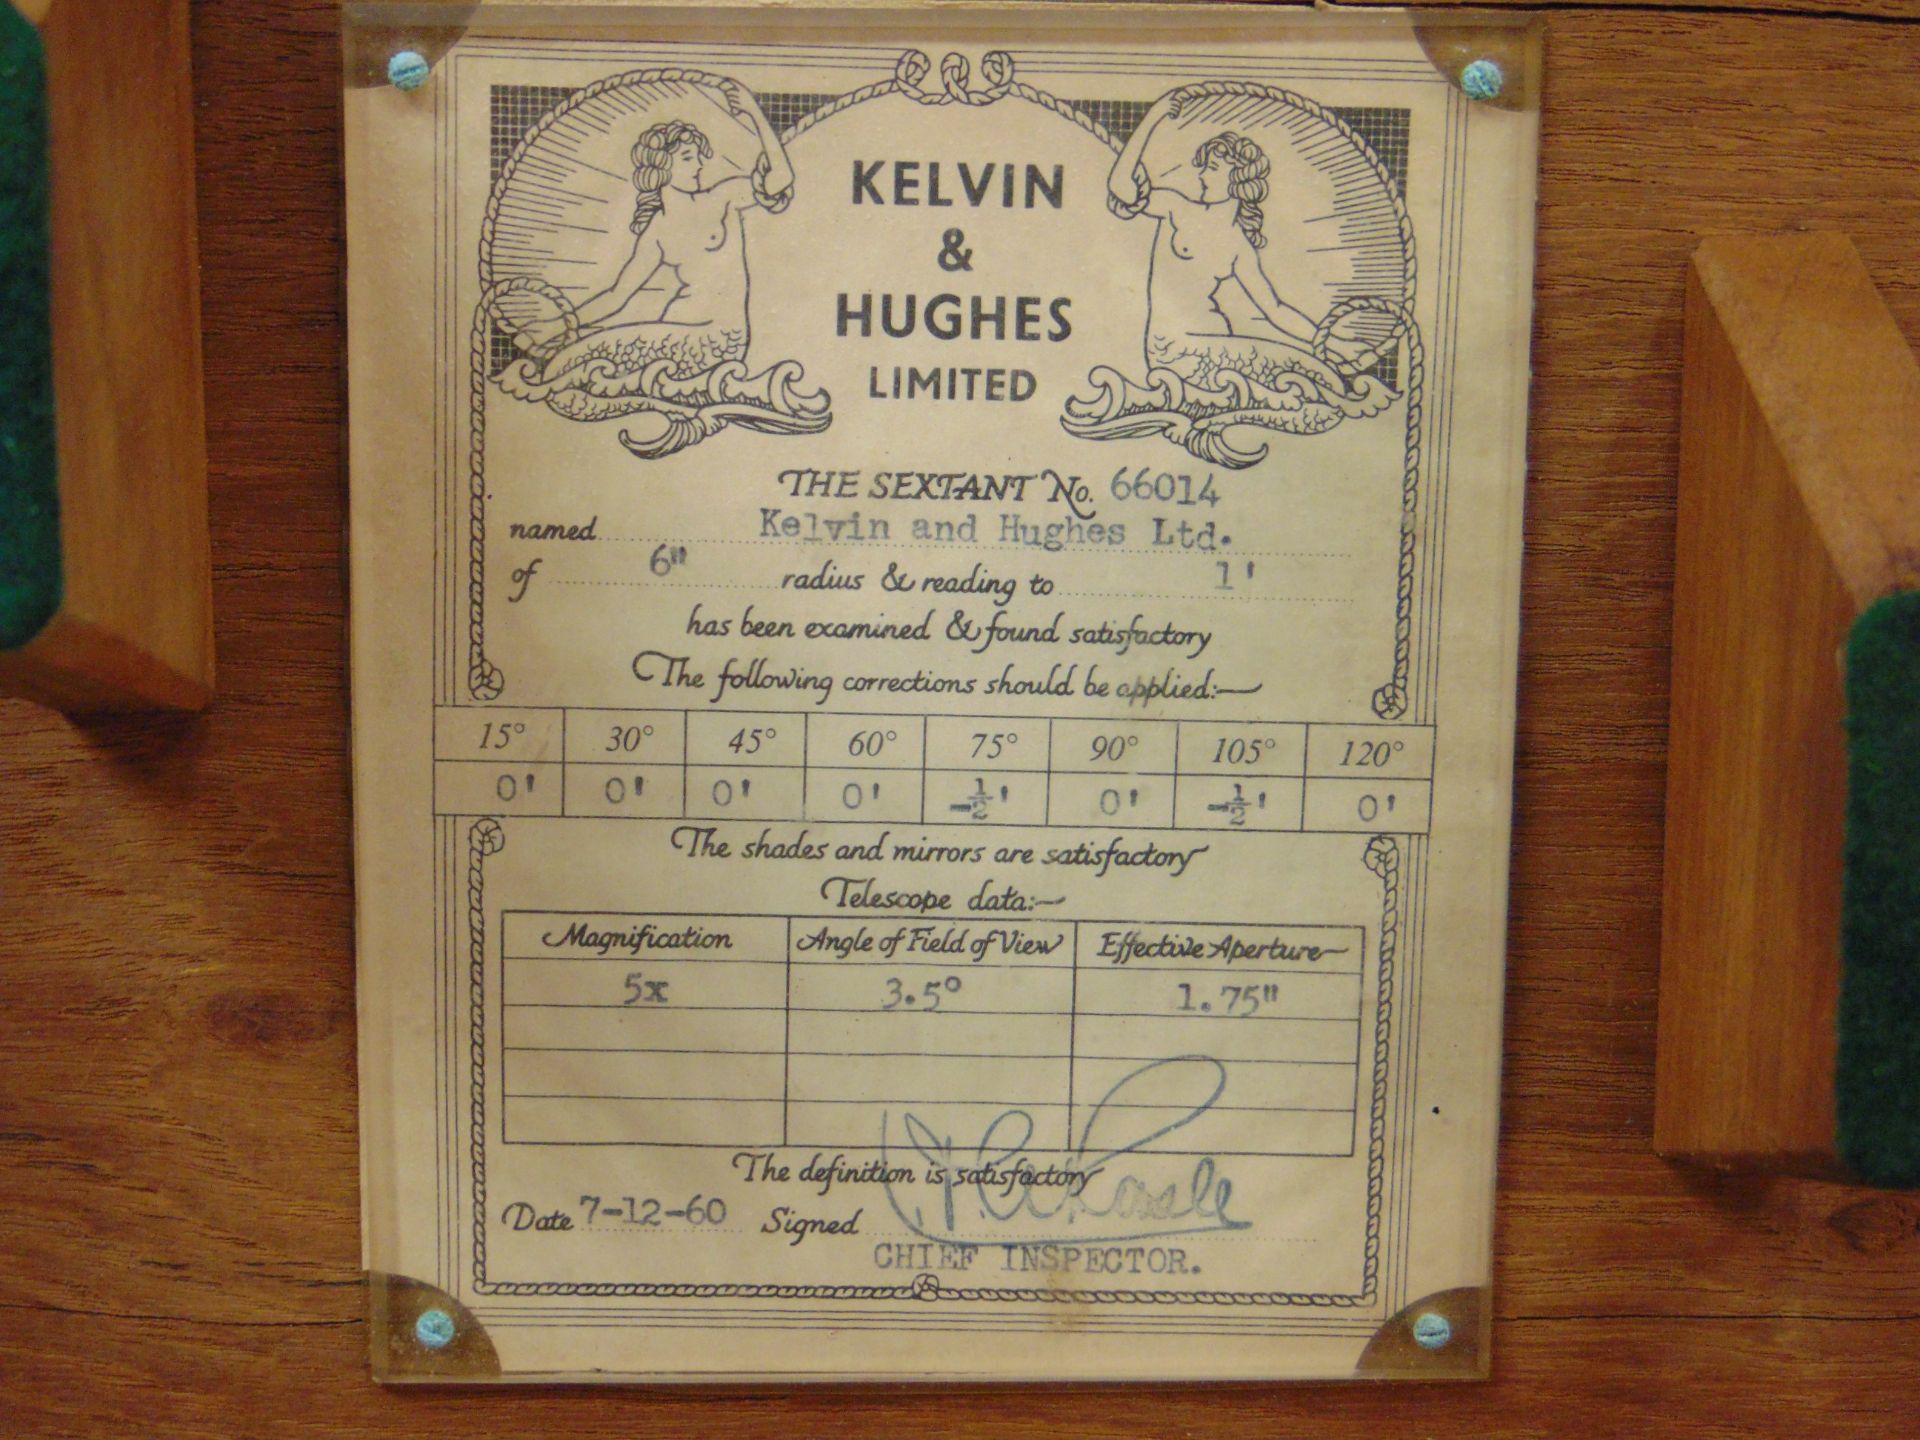 KELVIN
&
HUGHES
LIMITED
THE SEXTANT No. 66014
named Kelvin and Hughes Ltd.
of 6" radius & reading to 1'
has been examined & found satisfactory
The following corrections should be applied:—
15° 30° 45° 60° 75° 90° 105° 120°
0' 0' 0' 0' -½' 0' -½' 0'
The shades and mirrors are satisfactory
Telescope data:—
Magnification Angle of Field of View Effective Aperture
5x 3.5° 1.75"
The definition is satisfactory
Date 7-12-60 Signed
CHIEF INSPECTOR.